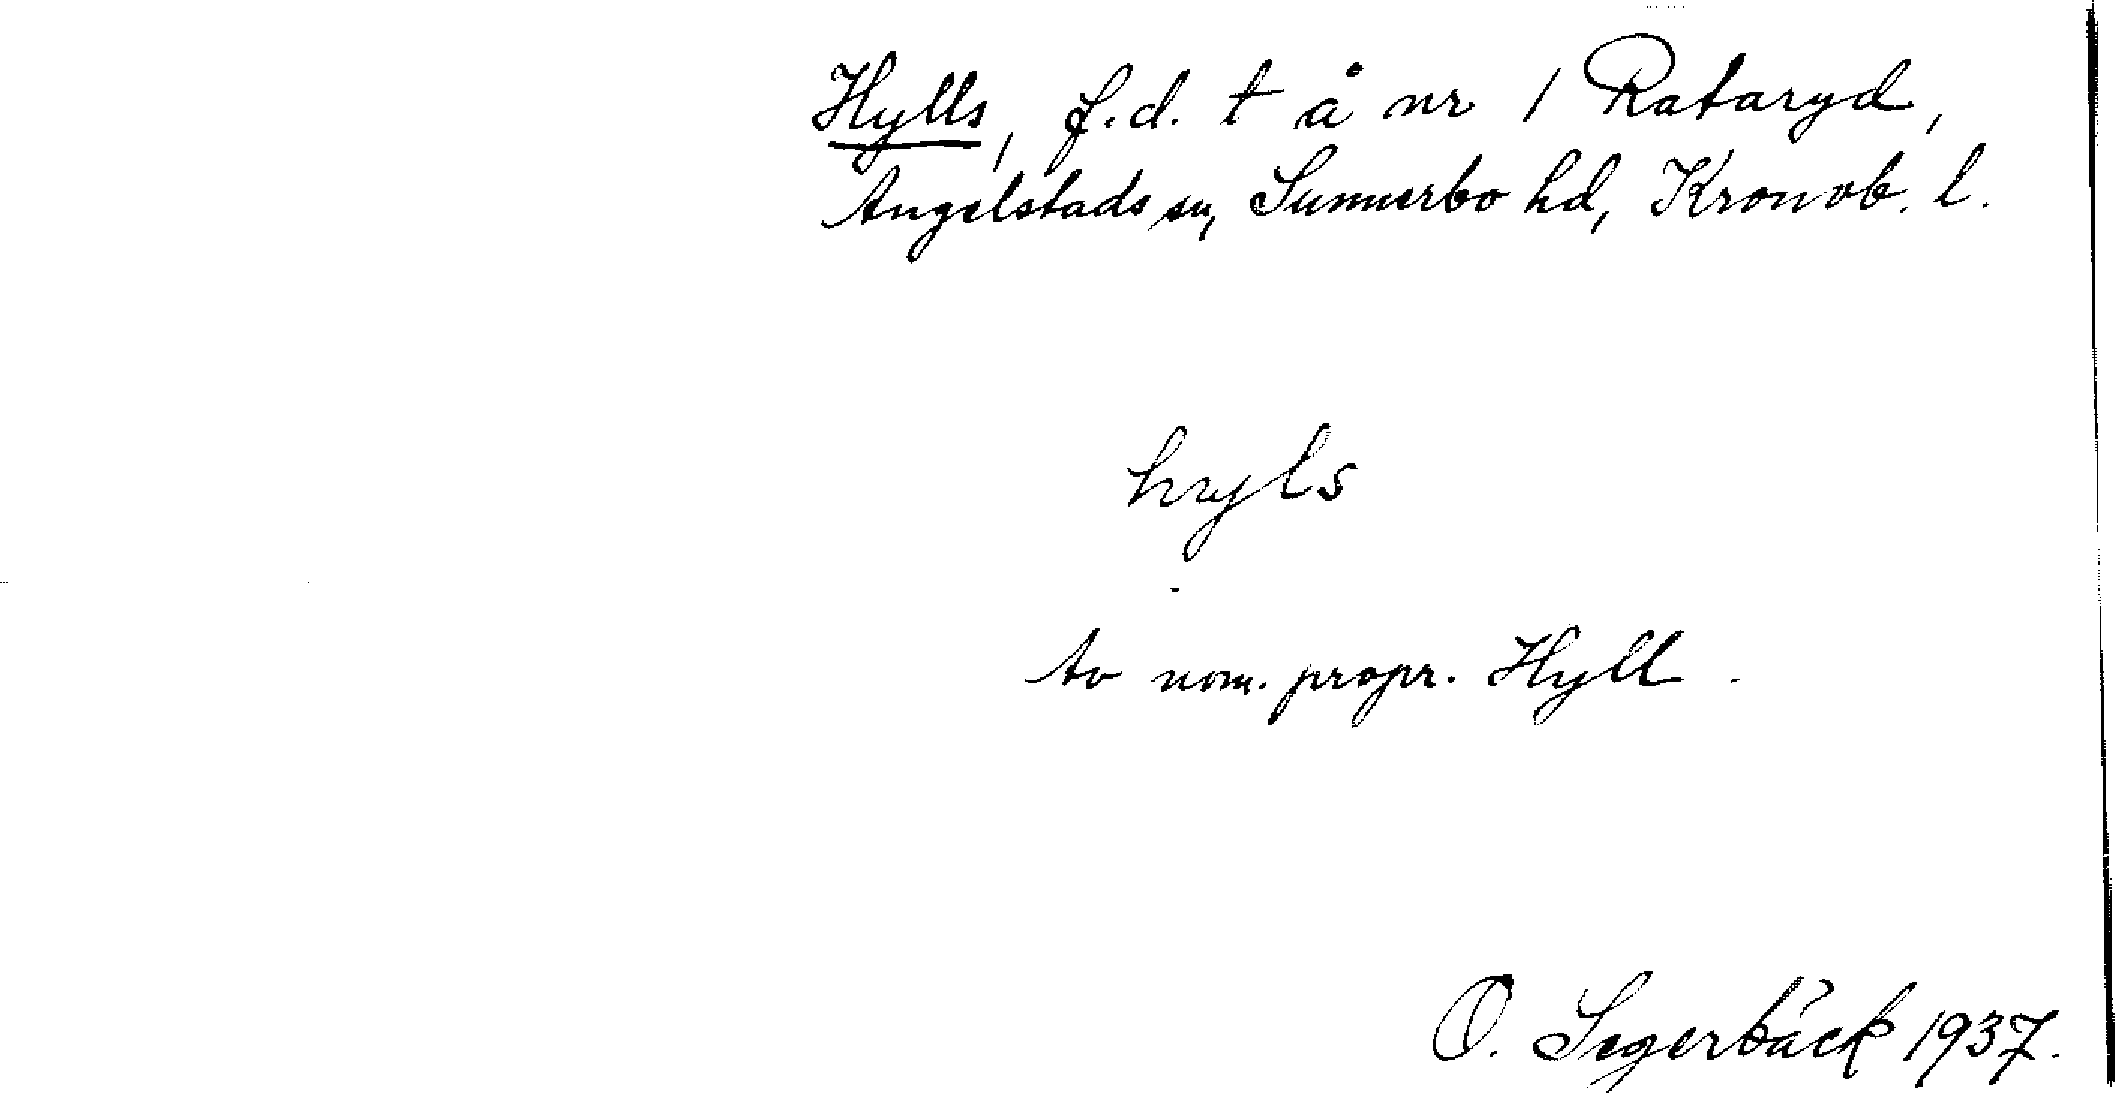 Hylls, f.d. t å nr 1 Rataryd,
Angelstads sn, Sunnerbo hd, Kronob. l.
hyls
Av nom. propr. Hyll.
O. Segerbäck 1937.